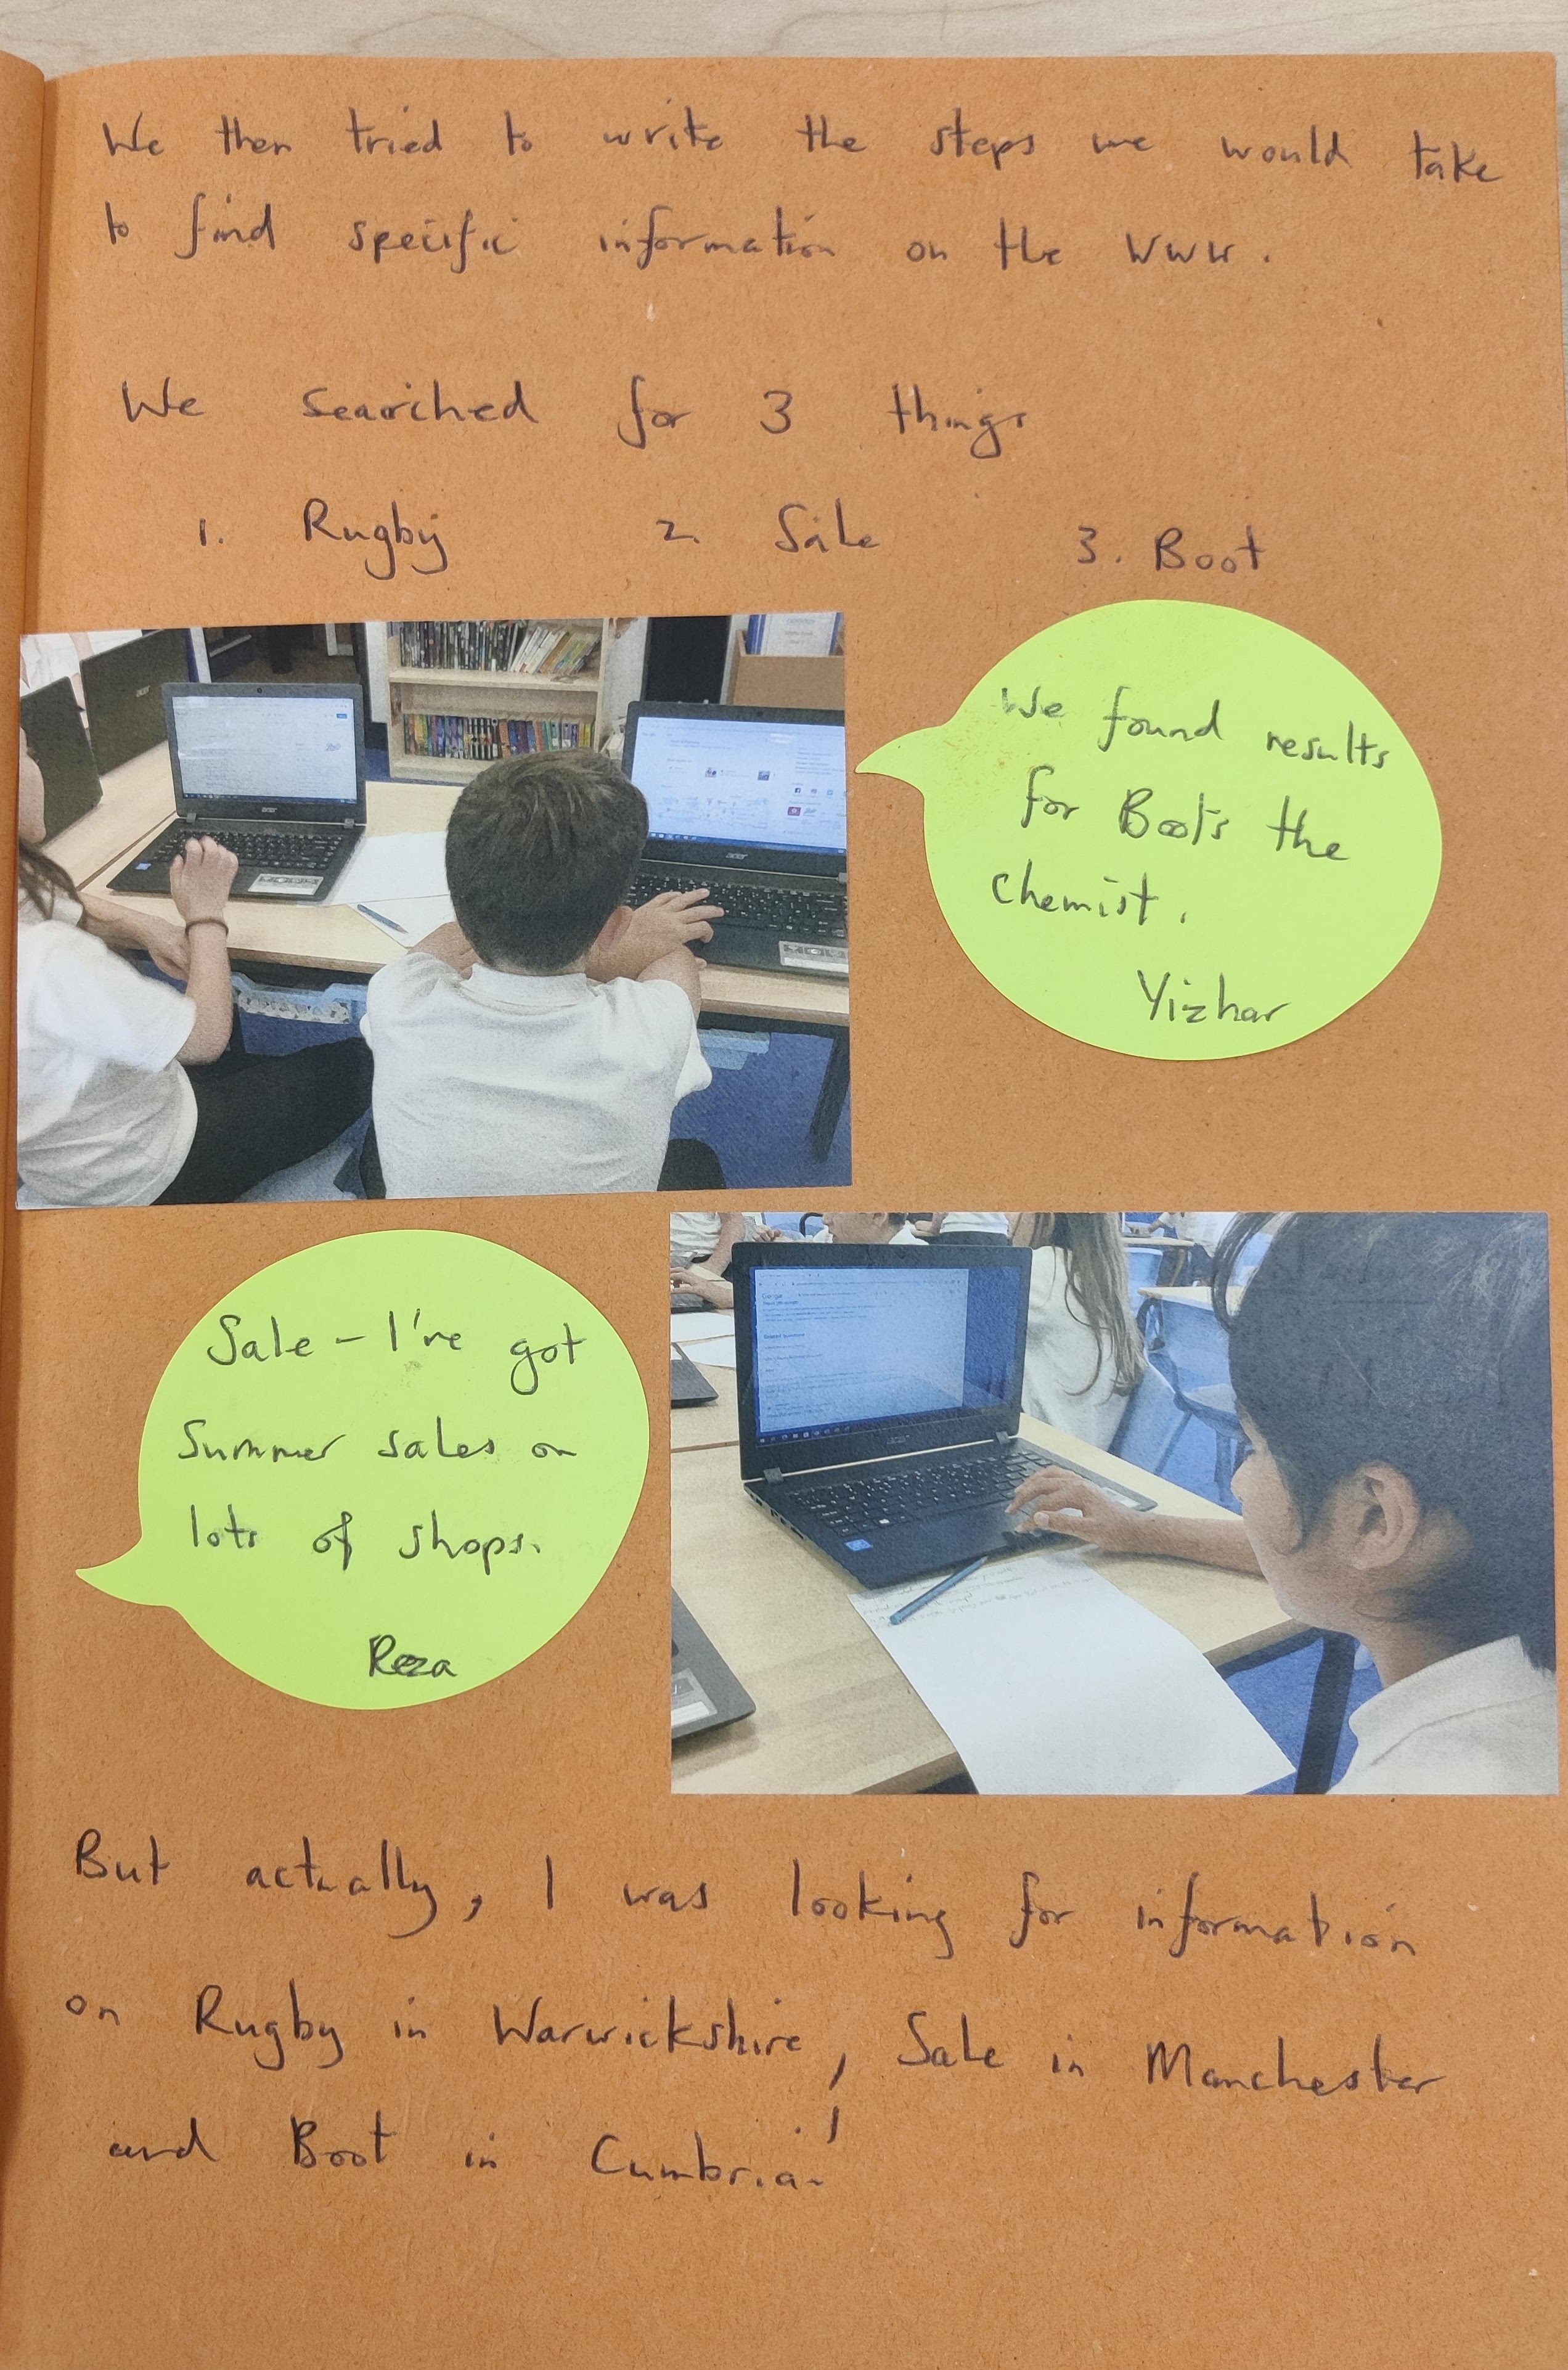 We then tried to write the steps we would take
to find specific information on the WWW.
We searched for 3 things
1. Rugby 2. Sale 3. Boot
We found results
for Boots the
chemist.
Yizhar
Sale - I've got
Summer sales on
lots of shops.
Reza
But actually, I was looking for information
on Rugby in Warwickshire, Sale in Manchester
and Boot in Cumbria!
acer
acer
acer
Google